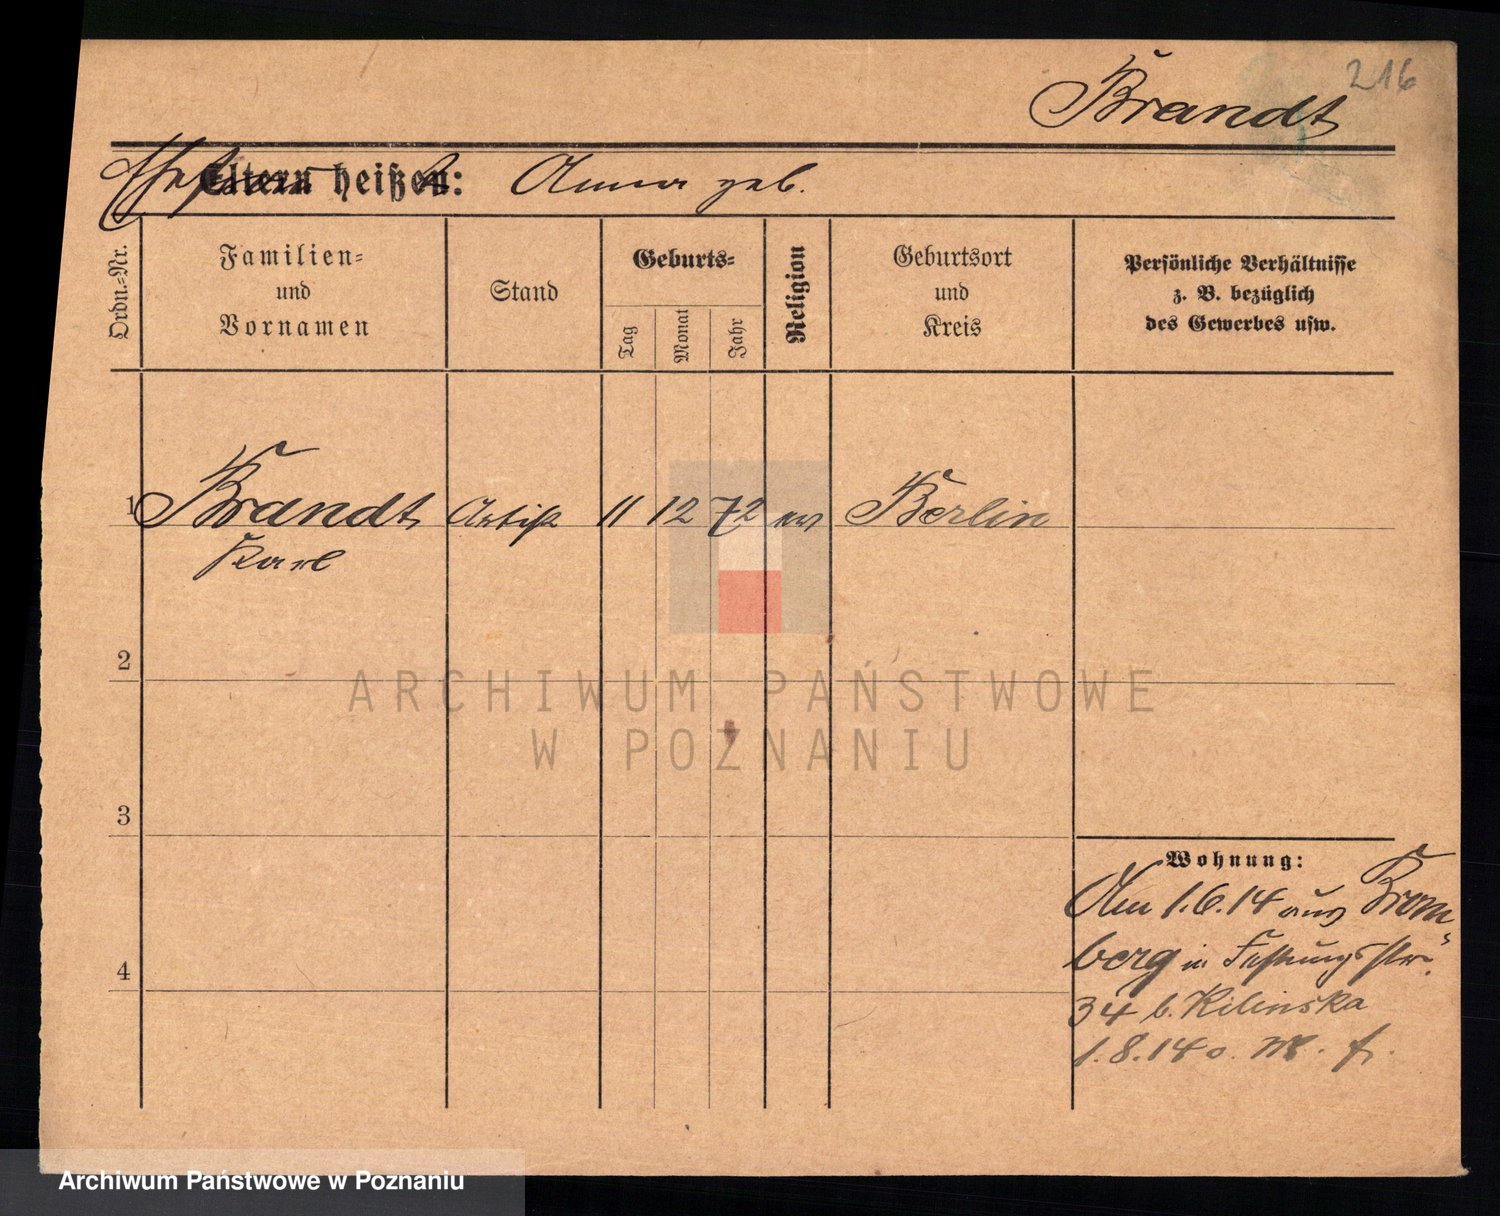 216
Brandt
Ehefrau Eltern heißen: Anna geb.
Ordn.-Nr.
Familien-
und
Vornamen
Stand
Geburts-
Tag
Monat
Jahr
Religion
Geburtsort
und
Kreis
Persönliche Verhältnisse
z. B. bezüglich
des Gewerbes usw.
1 Brandt Artist 11 12 72 ev Berlin
Karl
2
3
4
Wohnung:
Am 1.6.14 aus Brom
berg in Festungsstr.
34 b. Kilinska
1.8.14 o. M. f.
ARCHIWUM PAŃSTWOWE
W POZNANIU
Archiwum Państwowe w Poznaniu